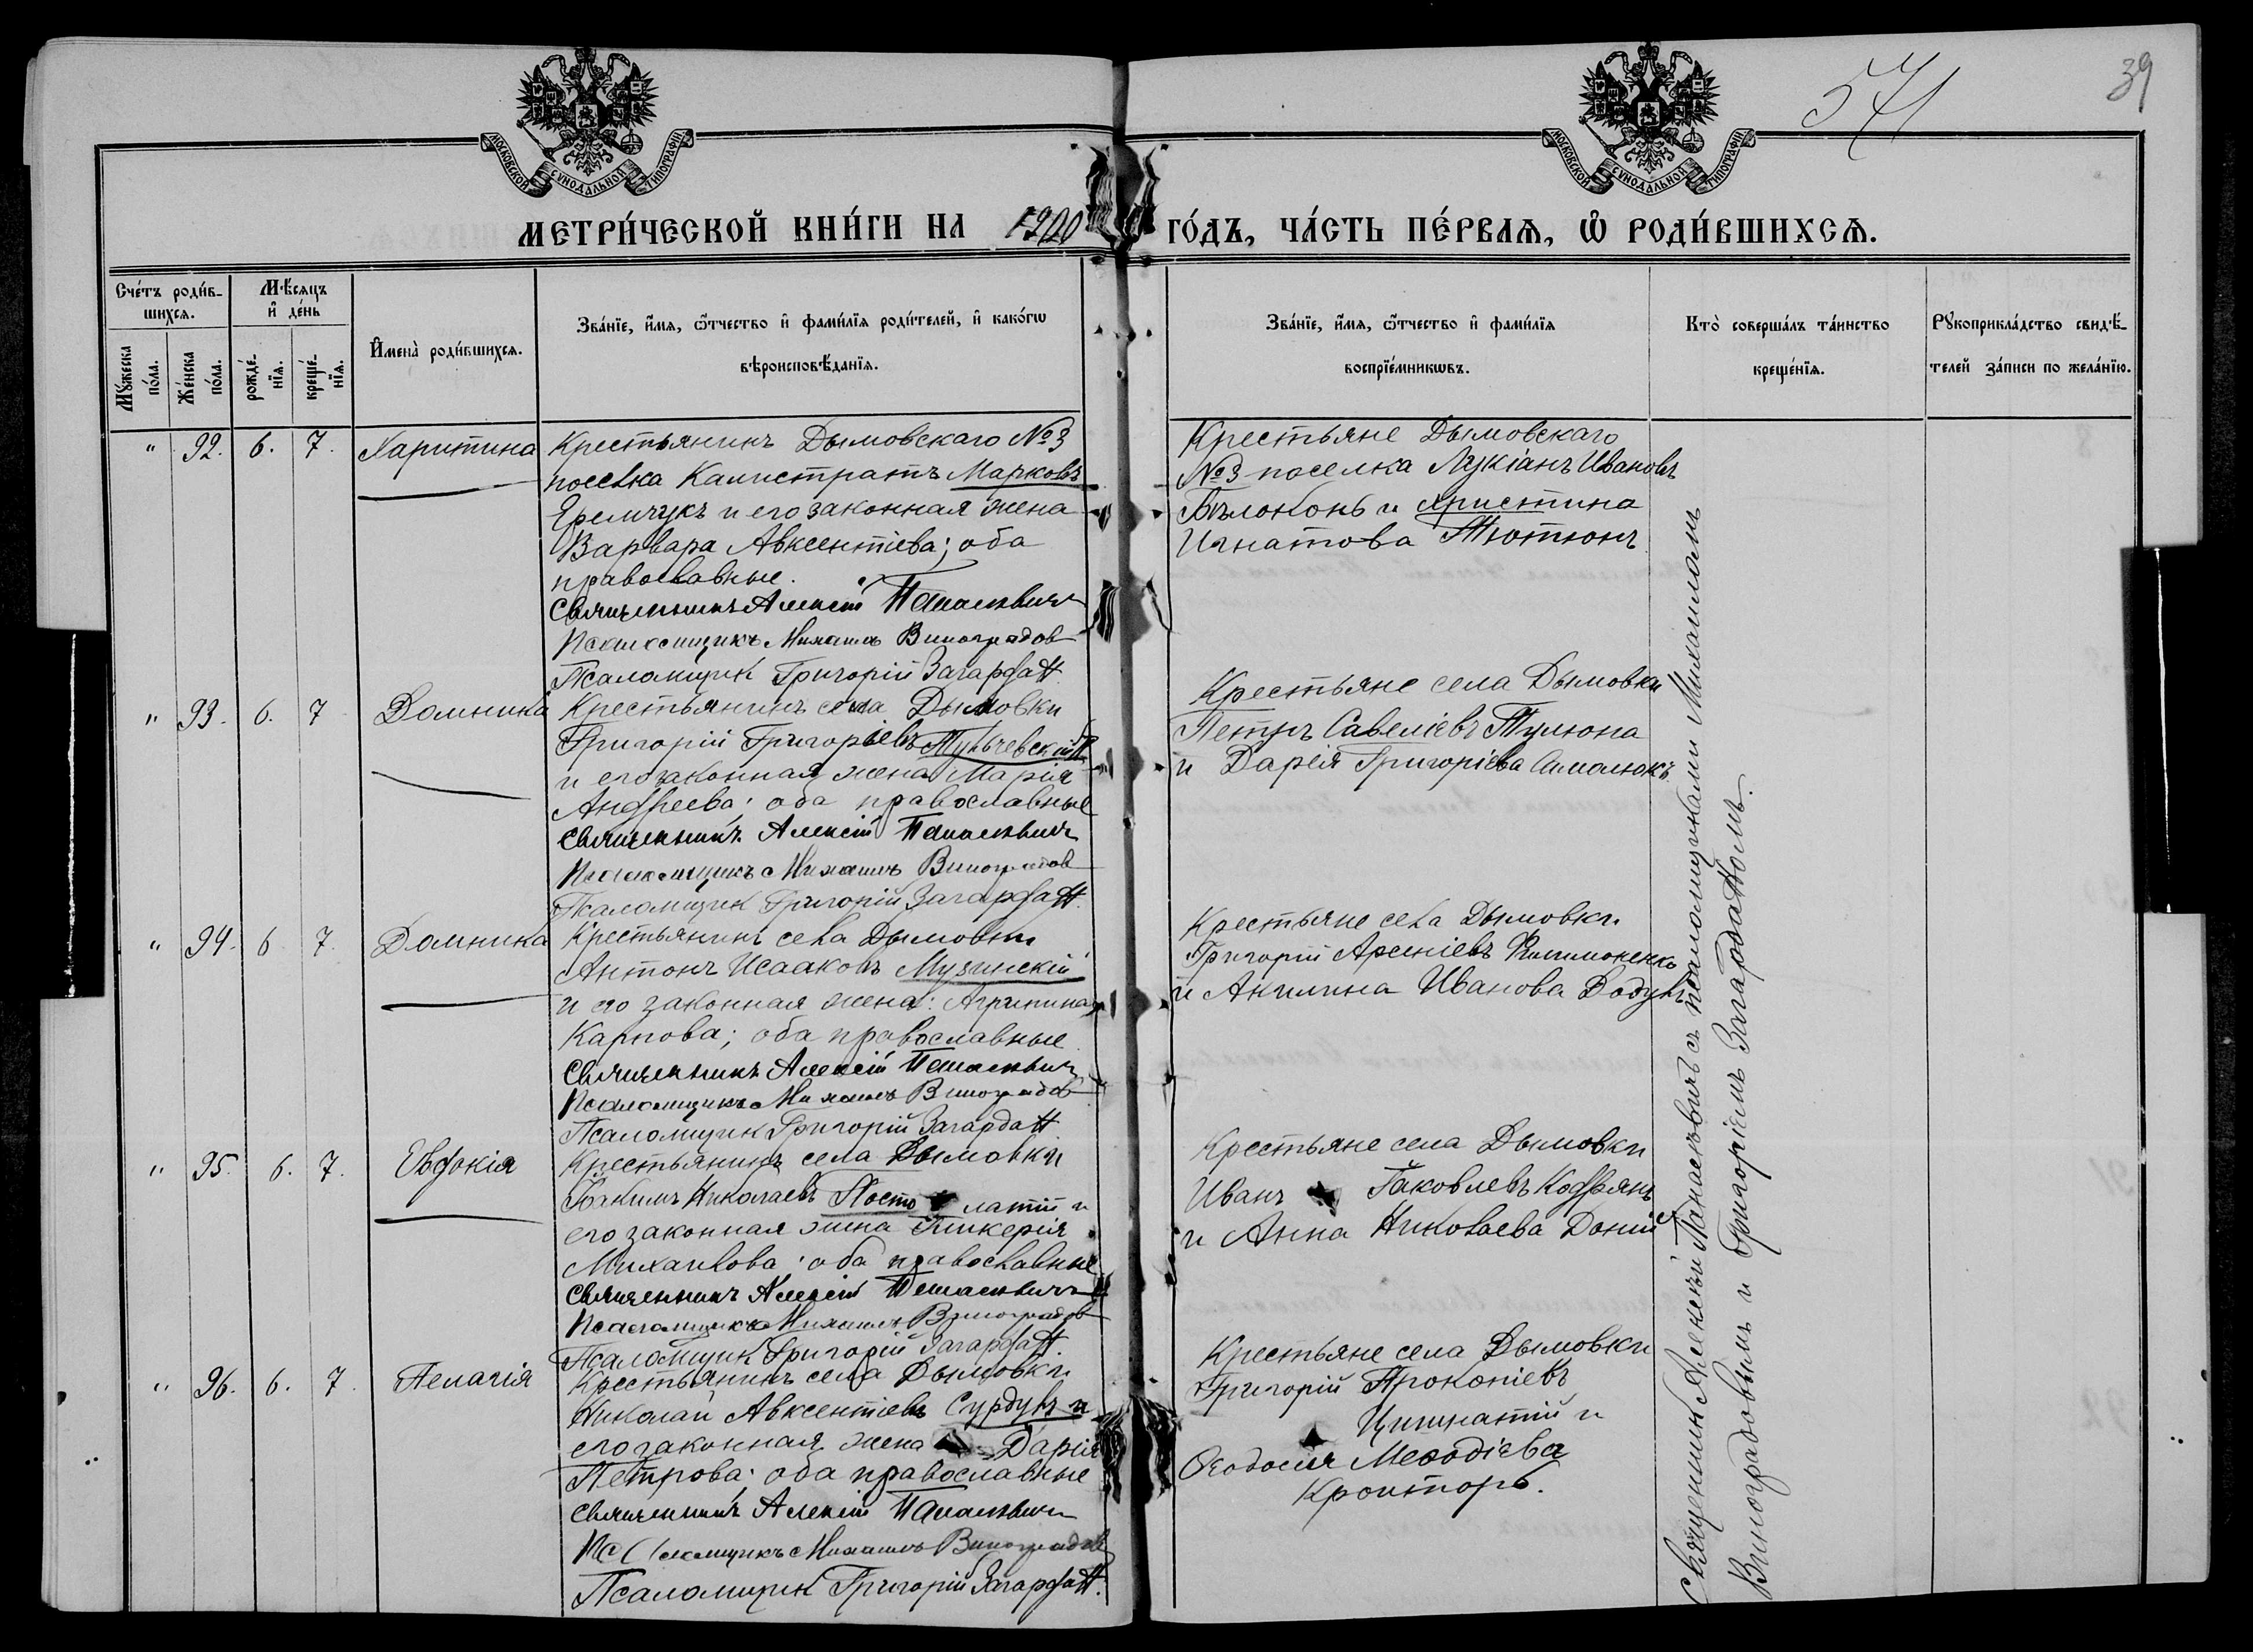 МОСКОВСКОЙ СѴНОДАЛЬНОЙ ТИПОГРАФІИ
МОСКОВСКОЙ СѴНОДАЛЬНОЙ ТИПОГРАФІИ
571
39
МЕТРИ́ЧЕСКОЙ КНИ́ГИ НА 1920 ГО́ДЪ, ЧА́СТЬ ПЕ́РВАѦ, Ѡ҆ РОДИ́ВШИХСѦ.
Сче́тъ роди́в-
шихсѧ.
Мꙋ́жеска
по́ла.
Же́нска
по́ла.
Мѣ́сѧцъ
и҆ де́нь
рожде́-
нїѧ.
креще́-
нїѧ.
И҆мена̀ роди́вшихсѧ.
Зва́нїе, и҆́мѧ, ѻ҆́тчество и҆ фами́лїѧ роди́телей, и҆ како́гѡ
вѣроисповѣ́данїѧ.
Зва́нїе, и҆́мѧ, ѻ҆́тчество и҆ фами́лїѧ
воспрїе́мникѡвъ.
Кто̀ соверша́лъ та́инство
креще́нїѧ.
Рꙋкоприкла́дство свидѣ́-
телей за́писи по жела́нїю.
" 92. 6. 7. Харитина
Крестьянинъ Дымовскаго №3
поселка Калистратъ Марковъ
Еремчукъ и его законная жена
Варвара Авксентіева; оба
православные.
Священникъ Алексій Панасевичъ
Псаломщикъ Михаилъ Виноградов
Псаломщик Григорій Загардан
Крестьяне Дымовскаго
№3 поселка Лукіанъ Ивановъ
Бѣлоконь и Христина
Игнатова Тютюнъ
" 93. 6. 7 Домника
Крестьянинъ села Дымовки
Григорій Григорьевъ Тульчевскій
и его законная жена Марія
Андреева; оба православные
Священникъ Алексій Панасевичъ
Псаломщикъ Михаилъ Виноградов
Псаломщик Григорій Загардан
Крестьяне села Дымовки
Петръ Савеліевъ
и Дарія Григоріева
" 94. 6 7. Домника
Крестьянинъ села Дымовки
Антонъ Исааковъ Музинскій
и его законная жена: Агрипина
Карпова; оба православные
Священникъ Алексій Панасевичъ
Псаломщикъ Михаилъ Виноградов
Псаломщик Григорій Загардан
Крестьяне села Дымовки
Григорій Арсеніевъ Филимоненко
и Акилина Иванова
" 95. 6. 7. Евдокія
Крестьянинъ села Дымовки
Іоакимъ Николаевъ Посто латій и
его законная жена Гликерія
Михаилова; оба православные
Священникъ Алексій Панасевичъ
Псаломщикъ Михаилъ Виноградов
Псаломщик Григорій Загардан.
Крестьяне села Дымовки
Иванъ Іаковлевъ Кодрянъ
и Анна Николаева Доній
" 96. 6. 7 Пелагія
Крестьянинъ села Дымовки
Николай Авксентіевъ Сурдулъ и
его законная жена Дарія
Петрова; оба православные
Священникъ Алексій Панасевичъ
Псаломщикъ Михаилъ Виноградов
Псаломщик Григорій Загардан.
Крестьяне села Дымовки
Григорій Прокопіевъ
Цигинатій и
Ѳеодосія Меѳодіева
Кройторъ.
Священникъ Алексѣй Панасевичъ съ псаломщиками Михаиломъ
Виноградовымъ и Григоріемъ Загарданомъ.